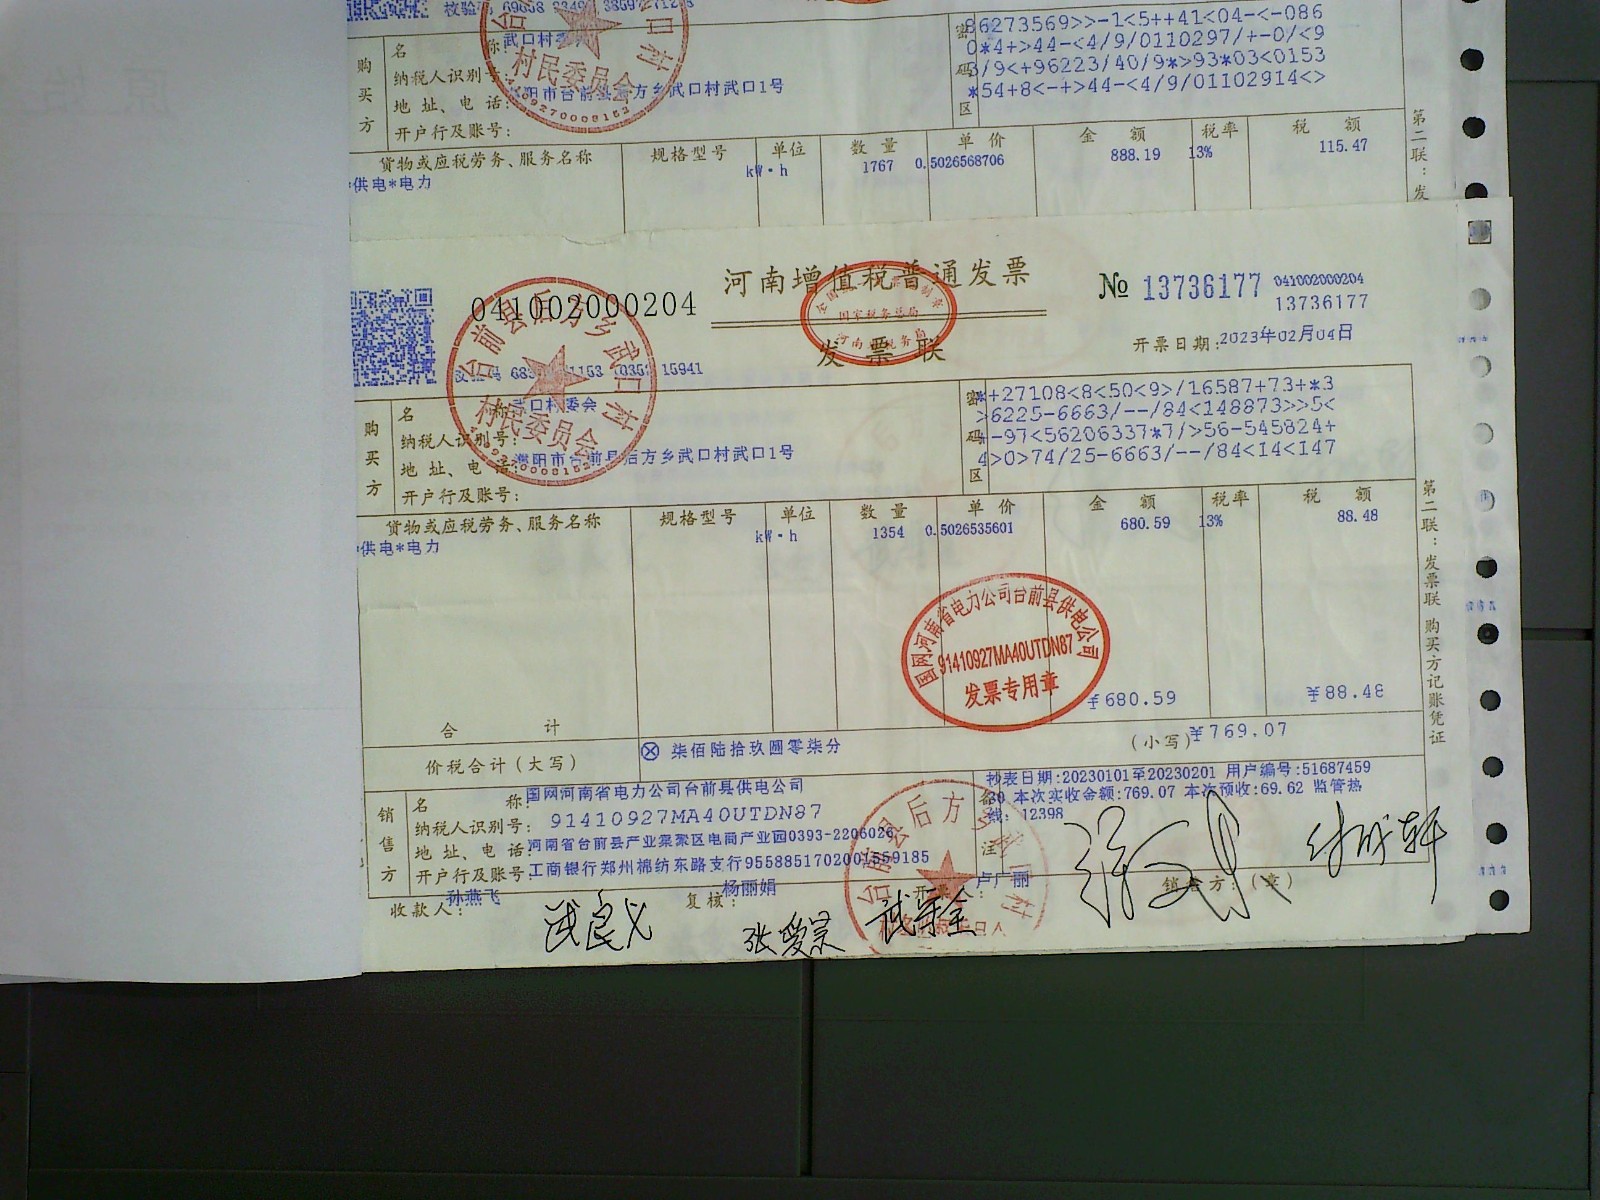 校验码
密码区
86273569>>-1<5++41<04-<-086
0*4+>44-<4/9/0110297/+-0/<9
3/9<+96223/40/9*>93*03<0153
*54+8<-+>44-<4/9/01102914<>
购买方
名 称:武口村委会
纳税人识别号:
地址、电话:濮阳市台前县后方乡武口村武口1号
开户行及账号:
村民委员会
货物或应税劳务、服务名称 规格型号 单位 数量 单价 金额 税率 税额
*供电*电力 kW·h 1767 0.5026568706 888.19 13% 115.47
第二联:发
041002000204
河南增值税普通发票
№ 13736177
041002000204
13736177
发票联
开票日期:2023年02月04日
台前县后方乡武口村
村民委员会
15941
购买方
名 称:武口村委会
纳税人识别号:
地址、电话:濮阳市台前县后方乡武口村武口1号
开户行及账号:
密码区
*+27108<8<50<9>/16587+73+*3
>6225-6663/--/84<148873>>5<
+-97<56206337*7/>56-545824+
4>0>74/25-6663/--/84<14<147
货物或应税劳务、服务名称 规格型号 单位 数量 单价 金额 税率 税额
*供电*电力 kW·h 1354 0.5026535601 680.59 13% 88.48
国网河南省电力公司台前县供电公司
91410927MA40UTDN87
发票专用章
合计 ¥680.59 ¥88.48
价税合计(大写) ⊗ 柒佰陆拾玖圆零柒分 (小写)¥769.07
销售方
名 称:国网河南省电力公司台前县供电公司
纳税人识别号:91410927MA40UTDN87
地址、电话:河南省台前县产业集聚区电商产业园0393-2206026
开户行及账号:工商银行郑州棉纺东路支行9558851702001559185
备注
抄表日期:20230101至20230201 用户编号:51687459
30 本次实收金额:769.07 本次预收:69.62 监管热
线:12398
收款人:孙燕飞 复核:杨丽娟 开票人:卢广丽 销售方:(章)
武良义
张爱景
武宗全
第二联:发票联 购买方记账凭证